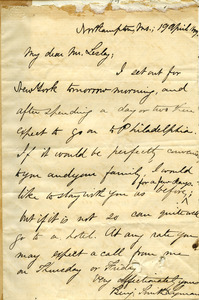 Northampton, Ms., 19 April
My dear Mr. Leely;
I set out for
New York tomorrow morning, and
after spending a day or two there
expect to go on to Philadelphia.
If it would be perfectly convenient
to you and your family, I would
for a few days.
like to stay with you as before,
but if it is not so can quite well
go to a hotel. At any rate you
may expect a call from me
on Thursday or Friday.
Very affectionately yours